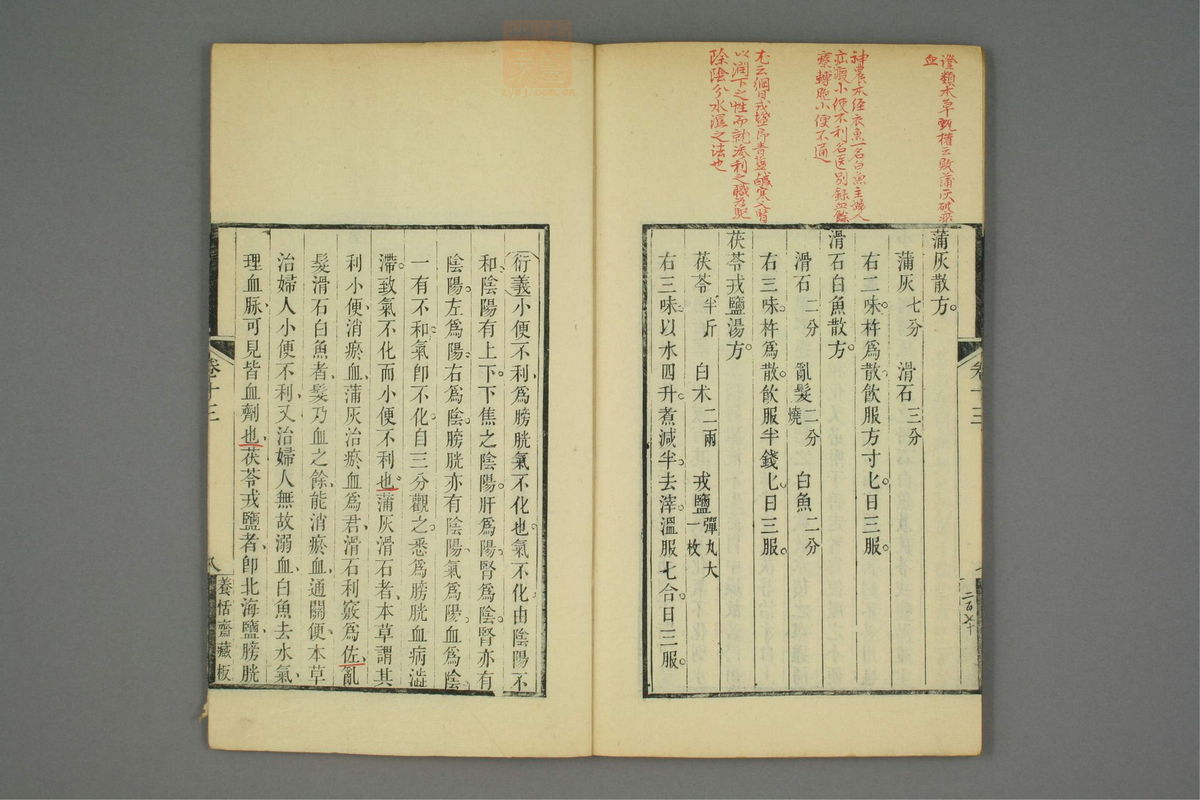 證類本草甄權云敗蒲灰破瘀
血
神農本經衣魚一名白魚主婦人
疝瘕小便不利名醫別錄血餘
療轉胞小便不通
尤云綱目戎鹽即青鹽鹹寒入腎
以潤下之性而就滲利之職爲驅
除陰分水濕之法也
蒲灰散方。
蒲灰七分 滑石三分
右二味。杵爲散。飲服方寸匕。日三服。
滑石白魚散方。
滑石二分 亂髮二分燒 白魚二分
右三味。杵爲散。飲服半錢匕。日三服。
茯苓戎鹽湯方。
茯苓半斤 白朮二兩 戎鹽彈丸大一枚
右三味。以水四升。煮減半。去滓。溫服七合。日三服。
卷十三
二百七十
衍義小便不利。爲膀胱氣不化也。氣不化。由陰陽不
和。陰陽有上下。下焦之陰陽。肝爲陽。腎爲陰。腎亦有
陰陽。左爲陽。右爲陰。膀胱亦有陰陽。氣爲陽。血爲陰。
一有不和。氣卽不化。自三分觀之。悉爲膀胱血病澁
滯。致氣不化而小便不利也。蒲灰滑石者、本草謂其
利小便、消瘀血、蒲灰治瘀血爲君、滑石利竅爲佐、亂
髮滑石白魚者、髮乃血之餘、能消瘀血、通關便、本草
治婦人小便不利、又治婦人無故溺血、白魚去水氣、
理血脉、可見皆血劑也、茯苓戎鹽者、卽北海鹽、膀胱
卷十三
八
養恬齋藏板